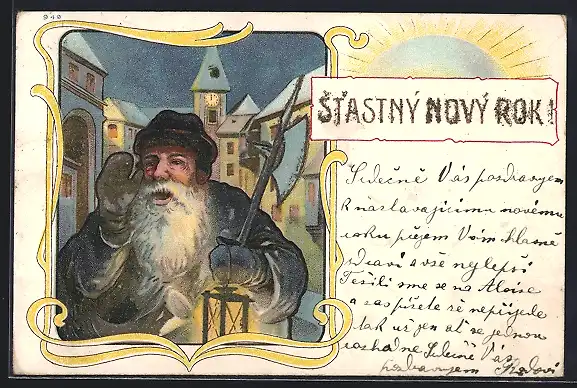 940
ŠŤASTNÝ NOVÝ ROK!
Srdečně Vás pozdravujem
k nastávajícímu novému
roku přejem Vám hlavně
zdraví a vše nejlepší
Těšili sme se na Aloise
a zas píšete že nepřijede
tak už jen ať se jednou
Srdečně Vás
pozdravujem